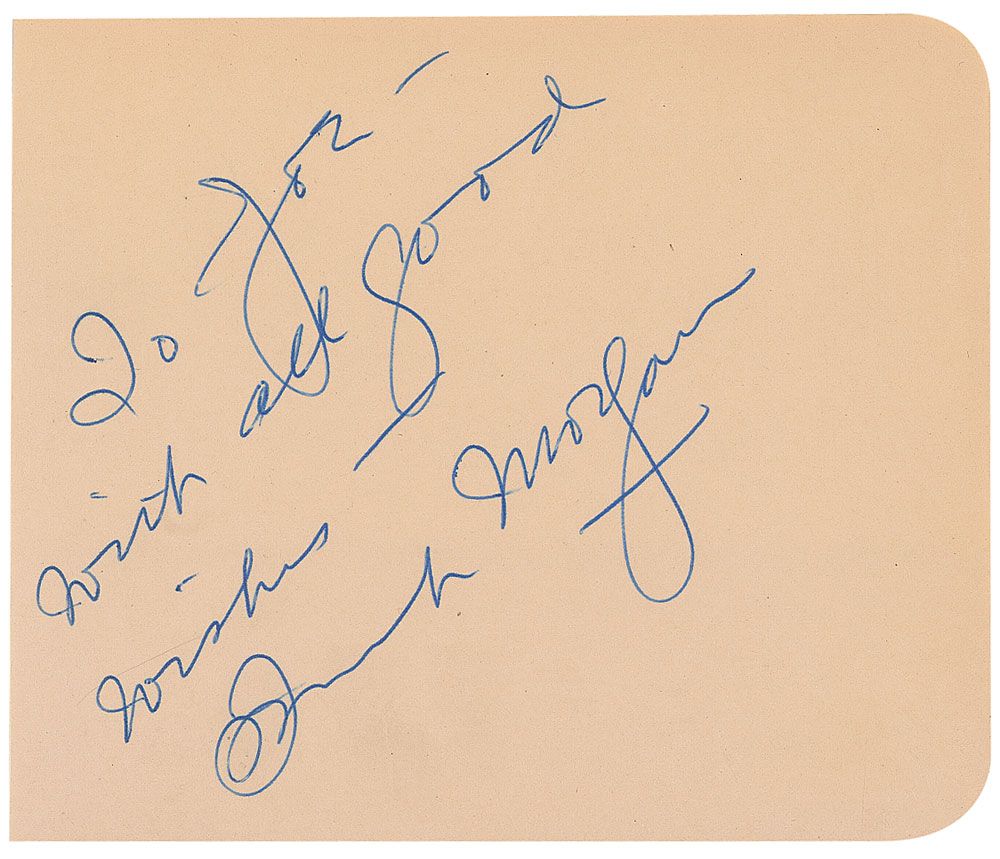 To Joe –
with all good
wishes
Frank Morgan